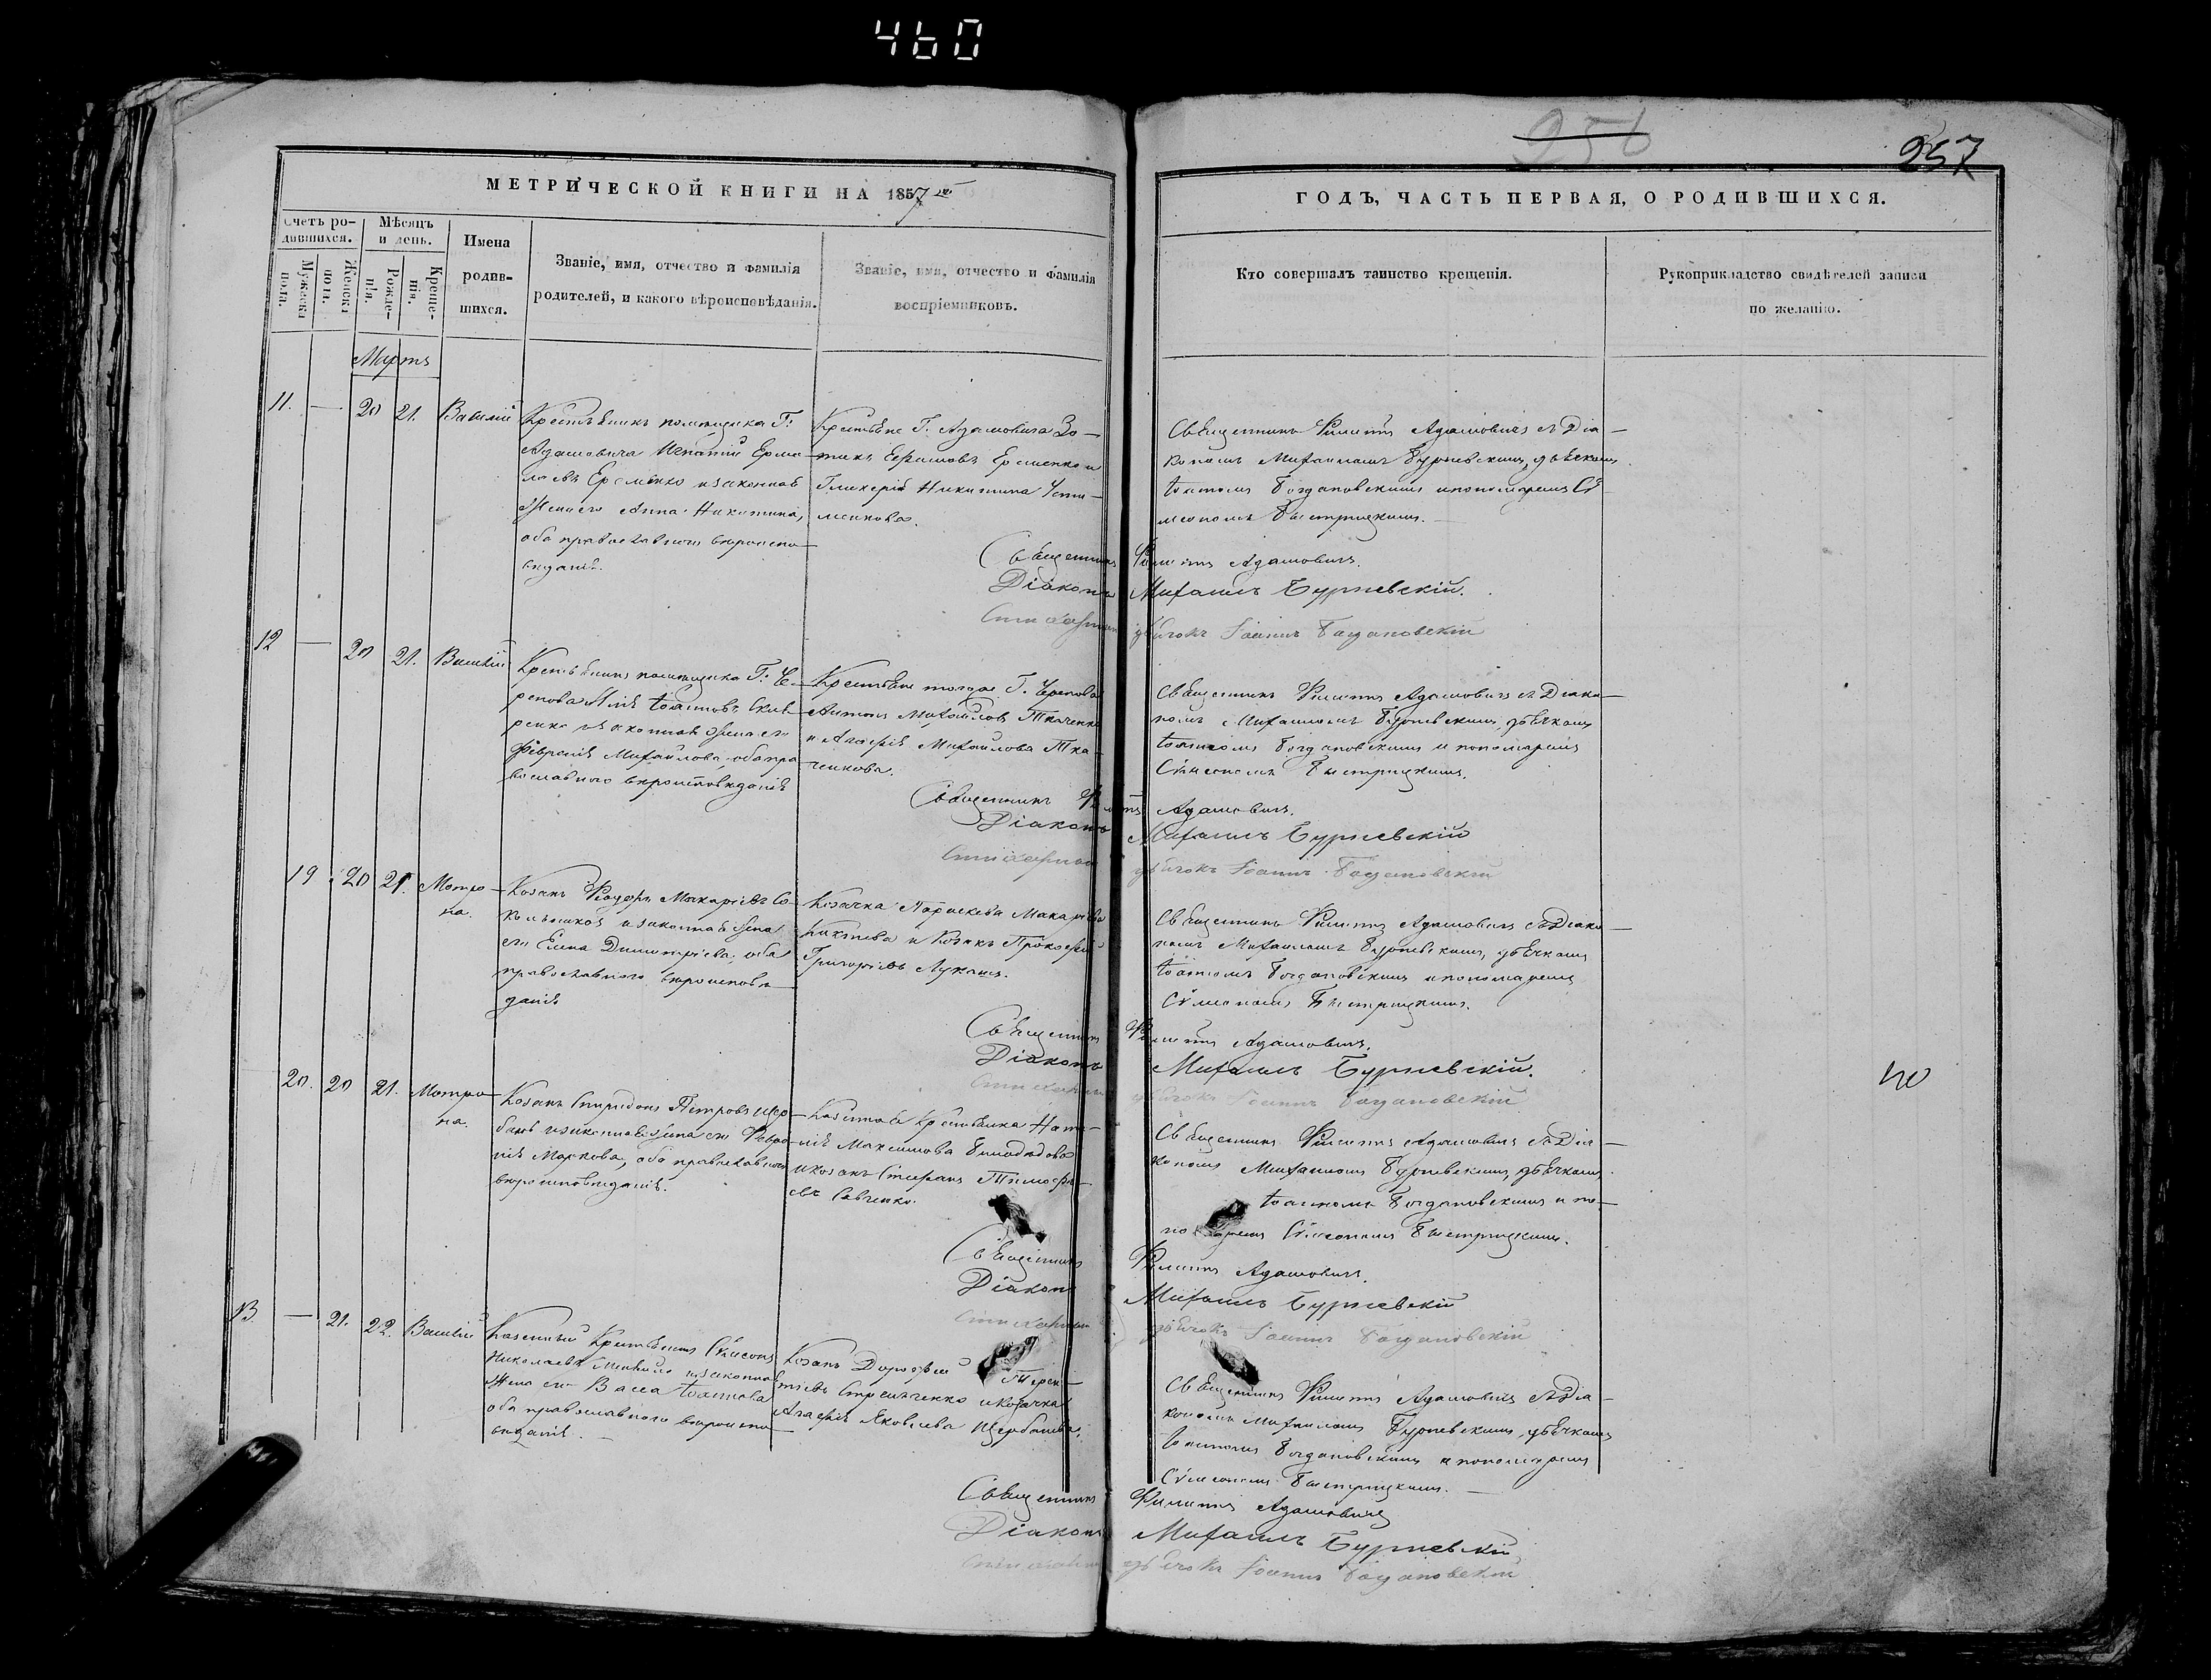 460
256
257
МЕТРИЧЕСКОЙ КНИГИ НА 1857й
ГОДЪ, ЧАСТЬ ПЕРВАЯ, О РОДИВШИХСЯ.
Счетъ ро-
дившихся.
Мужеска
пола.
Женска
пола.
Мѣсяцъ
и день.
Рожде-
нія.
Креще-
нія.
Имена
родив-
шихся.
Званіе, имя, отчество и фамилія
родителей, и какого вѣроисповѣданія.
Званіе, имя, отчество и фамилія
воспріемниковъ.
Кто совершалъ таинство крещенія.
Рукоприкладство свидѣтелей записи
по желанію.
Мартъ
11. — 20 21. Василій
Крестьянинъ помѣщика Г:
Адамовича Игнатій Ермо-
лаевъ Еременко и законная
жена его Анна Никитина,
оба православного вѣроиспо-
вѣданія.
Крестьяне Г. Адамовича
Ефимовъ Еременко и
Гликерія Никитина
Священникъ Филиппъ Адамовичъ съ Діа-
кономъ Михаиломъ Бурневскимъ, дьячкомъ
Іоанномъ Богдановскимъ и пономаремъ Сѵ-
меономъ Быстрицкимъ.
Священникъ Филиппъ Адамовичъ.
Діаконъ Михаилъ Бурневскій.
дьячокъ Іоаннъ Богдановскій
12 — 20 21. Василій
Крестьянинъ помѣщика Г: Че-
репова Илія Іоанновъ
и законная жена его
Февронія Михайлова, оба пра-
вославного вѣроисповѣданія
Крестьяне тогоже Г. Черепова
Антонъ Михайловъ Ткаченко
и Агафія Михайлова Тка-
ченкова.
Священникъ Филиппъ Адамовичъ съ Діако-
номъ Михаиломъ Бурневскимъ, дьячкомъ
Іоанномъ Богдановскимъ и пономаремъ
Сѵмеономъ Быстрицкимъ.
Священникъ Филиппъ Адамовичъ.
Діаконъ Михаилъ Бурневскій
дьячокъ Іоаннъ Богдановскій
19 20 21. Мотро-
на.
Козакъ Ѳеодоръ Макаріевъ
и законная жена
его Елена Димитріева, оба
православного вѣроисповѣ-
данія
Козачка Параскева Макаріева
и Козакъ Прокофій
Григоріевъ Лукаш.
Священникъ Филиппъ Адамовичъ съ Діако-
номъ Михаиломъ Бурневскимъ, дьячкомъ
Іоанномъ Богдановскимъ и пономаремъ
Сѵмеономъ Быстрицкимъ.
Священникъ Филиппъ Адамовичъ.
Діаконъ Михаилъ Бурневскій.
дьячокъ Іоаннъ Богдановскій
20. 20 21. Мотро-
на.
Козакъ Спиридонъ Петровъ Щер-
бакъ и законная жена его Февро-
нія Маркова, оба православного
вѣроисповѣданія.
Казенная Крестьянка Ната-
лія Максимова
и козакъ Стефанъ Тимофѣ-
евъ Савченко.
Священникъ Филиппъ Адамовичъ съ Діа-
кономъ Михаиломъ Бурневскимъ, дьячкомъ
Іоанномъ Богдановскимъ и по-
номаремъ Сѵмеономъ Быстрицкимъ.
Священникъ Филиппъ Адамовичъ.
Діаконъ Михаилъ Бурневскій
дьячокъ Іоаннъ Богдановскій
13. — 21. 22. Василій
Казенный Крестьянинъ Сѵмеонъ
Николаевъ и законная
жена его Васса Іоаннова
оба православного вѣроиспо-
вѣданія.
Козакъ Дорофей Терен-
тіевъ Стрельченко и козачка
Агафія Яковлева Щербакова.
Священникъ Филиппъ Адамовичъ съ Діа-
кономъ Михаиломъ Бурневскимъ, дьячкомъ
Іоанномъ Богдановскимъ и пономаремъ
Сѵмеономъ Быстрицкимъ.
Священникъ Филиппъ Адамовичъ
Діаконъ Михаилъ Бурневскій
дьячокъ Іоаннъ Богдановскій